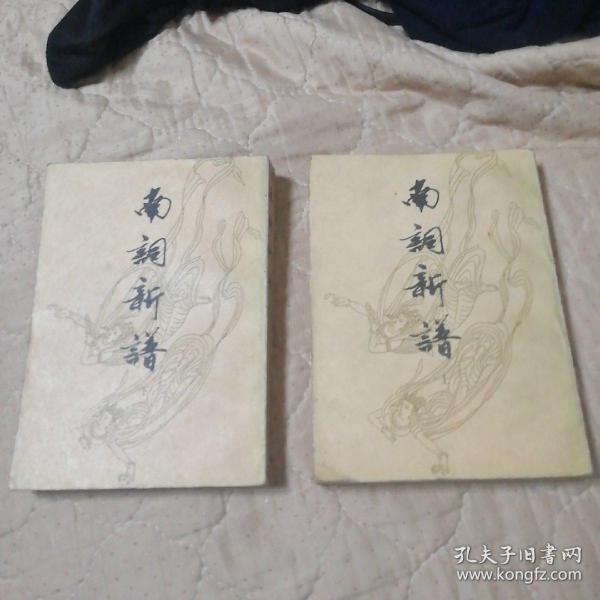 南詞新譜
南詞新譜
孔夫子旧书网
www.kongfz.com